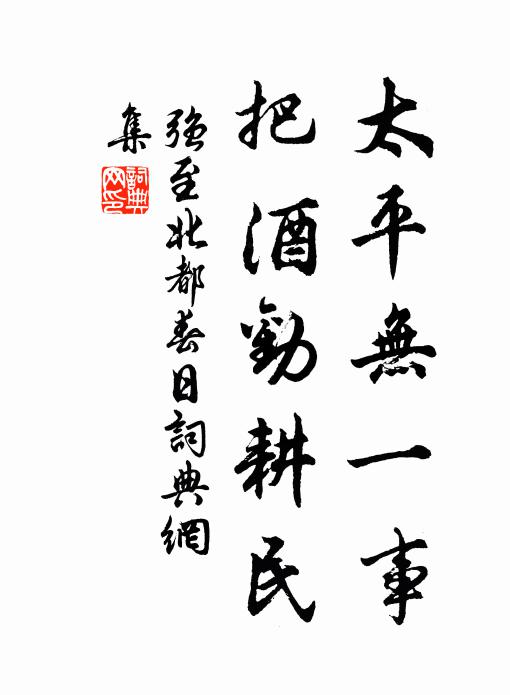 太平無一事
把酒勸耕民
強至北都春日詞典網
集
詞典网印